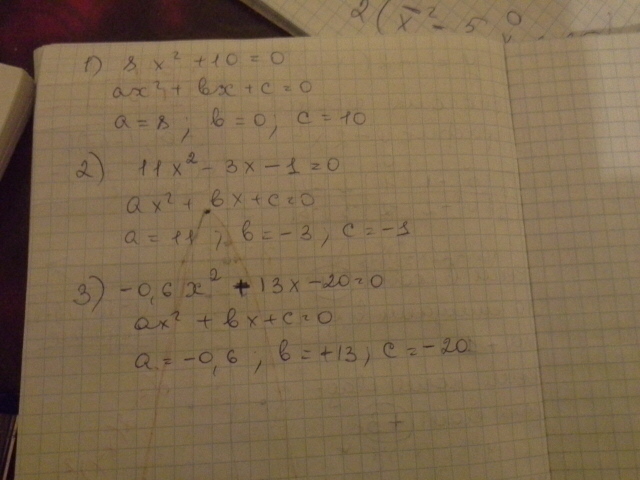 2(x² - 5
1) 8x² + 10 = 0
ax² + bx + c = 0
a = 8; b = 0; c = 10
2) 11x² - 3x - 1 = 0
ax² + bx + c = 0
a = 11; b = -3, c = -1
3) -0,6x² + 13x - 20 = 0
ax² + bx + c = 0
a = -0,6, b = +13, c = -20